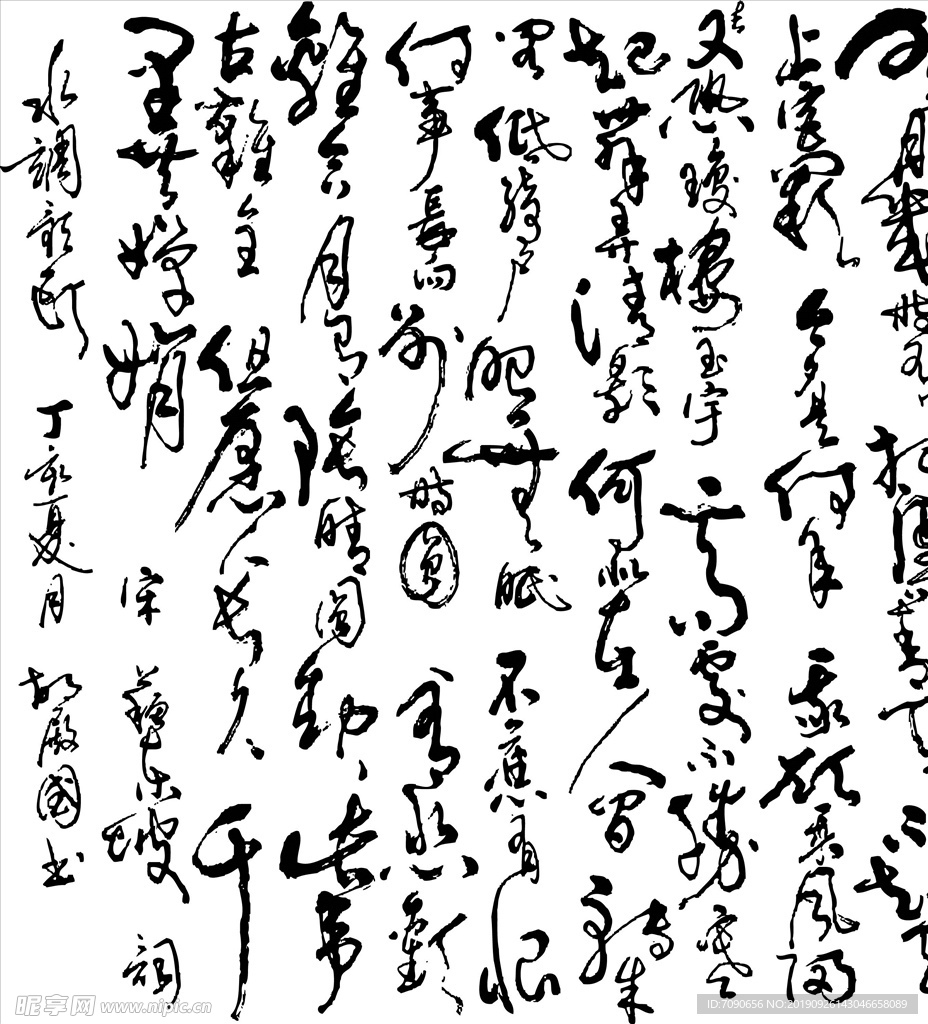 明月幾時有把酒問青天不知天
上宫闕今夕是何年我欲乘風歸
去又恐瓊樓玉宇高處不勝寒
起舞弄清影何似在人間轉朱
閣低綺户照無眠不應有恨
何事長向别時圓人有悲歡
離合月有陰晴圓缺此事
古難全但願人長久千
里共嬋娟宋蘇東坡詞
水調歌頭丁亥夏月胡殿國书
昵享网 www.nipic.cn
ID:7090656 NO:20190926143046658089